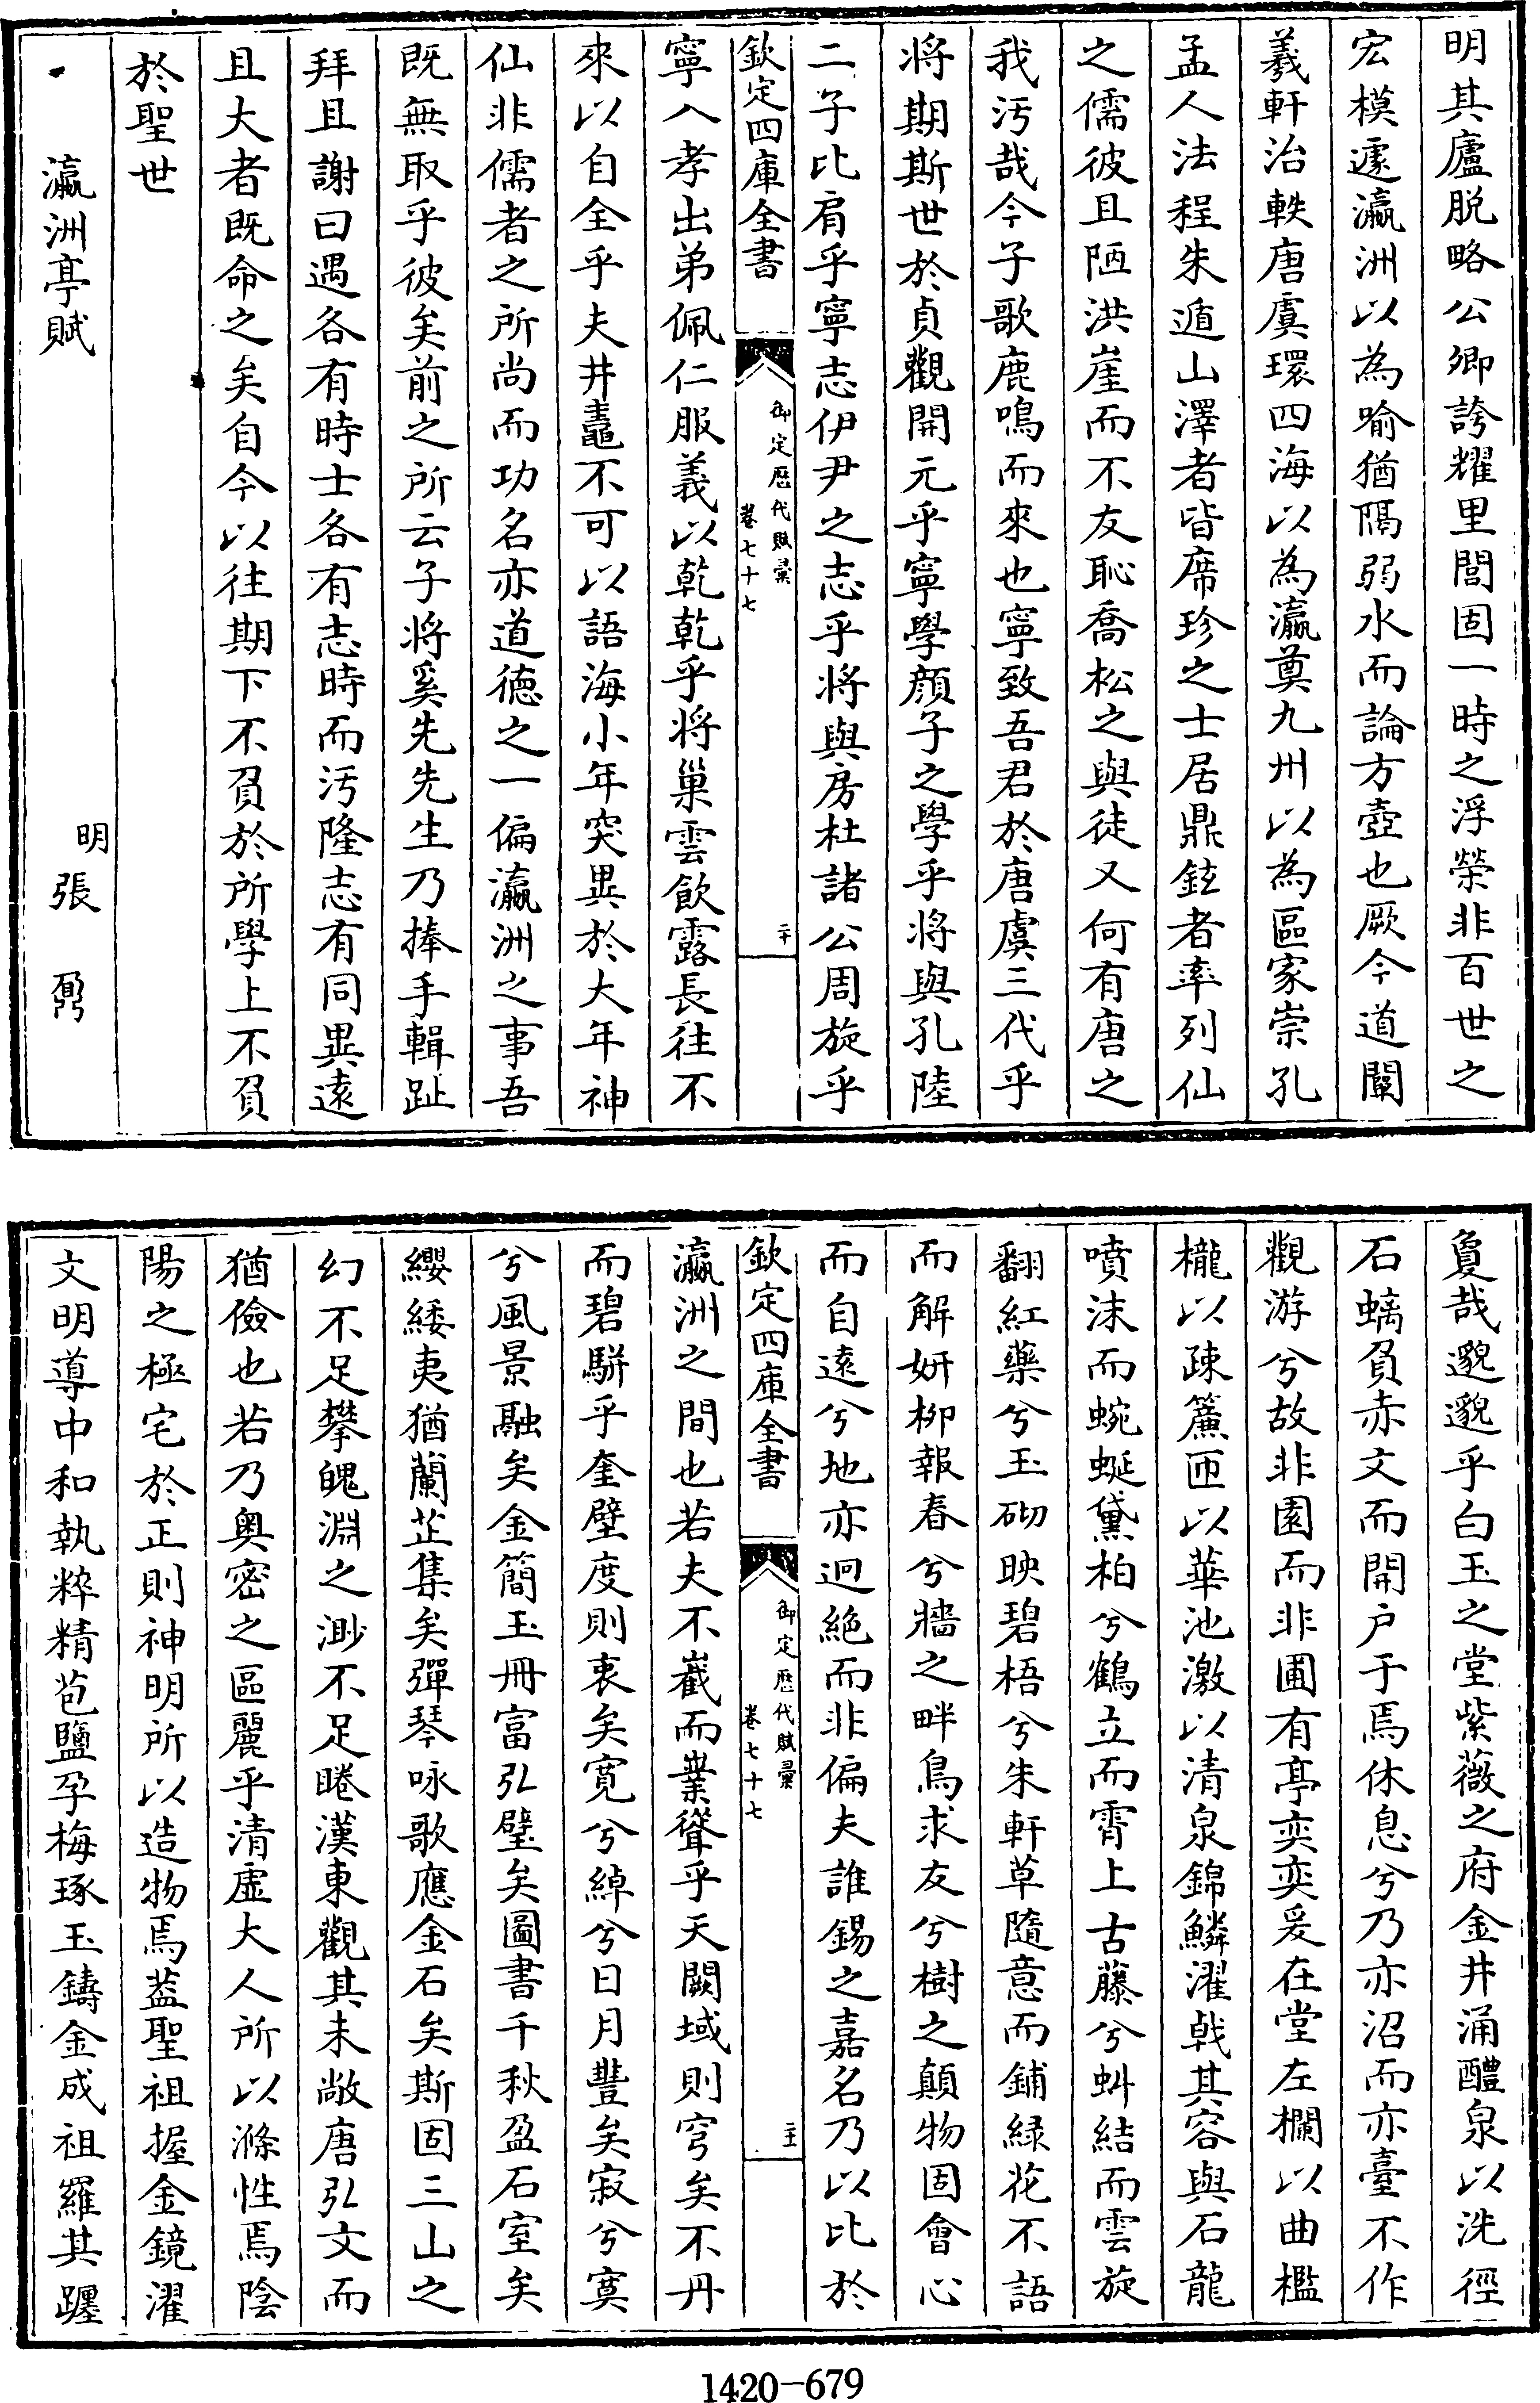 明其廬脱略公卿誇耀里閭固一時之浮榮非百世之
宏模遽瀛洲以為喻猶隔弱水而論方壺也厥今道闡
羲軒治軼唐虞環四海以為瀛奠九州以為區家崇孔
孟人法程朱遁山澤者皆席珍之士居鼎鉉者率列仙
之儒彼且陋洪崖而不友恥喬松之與徒又何有唐之
我汚哉今子歌鹿鳴而來也寧致吾君於唐虞三代乎
將期斯世於貞觀開元乎寧學顔子之學乎將與孔陸
二子比肩乎寧志伊尹之志乎將與房杜諸公周旋乎
欽定四庫全書
御定歴代賦彙
卷七十七
二十
寧入孝出弟佩仁服義以乾乾乎將巢雲飲露長往不
來以自全乎夫井鼃不可以語海小年突異於大年神
仙非儒者之所尚而功名亦道德之一偏瀛洲之事吾
既無取乎彼矣前之所云子將奚先先生乃捧手輯趾
拜且謝曰遇各有時士各有志時而汚隆志有同異遠
且大者既命之矣自今以往期下不負於所學上不負
於聖世
瀛洲亭賦
明
張鼐
敻哉邈邈乎白玉之堂紫薇之府金井涌醴泉以洗徑
石螭負赤文而開户于焉休息兮乃亦沼而亦臺不作
觀游兮故非園而非圃有亭奕奕爰在堂左欄以曲檻
櫳以疎簾匝以華池激以清泉錦鱗濯戟其容與石龍
噴沫而蜿蜒黛柏兮鶴立而霄上古藤兮虯結而雲旋
翻紅藥兮玉砌映碧梧兮朱軒草隨意而鋪緑花不語
而解妍柳報春兮牆之畔鳥求友兮樹之顛物固會心
而自遠兮地亦迥絶而非偏夫誰錫之嘉名乃以比於
欽定四庫全書
御定歴代賦彙
卷七十七
二十一
瀛洲之間也若夫不嶻而嶪聳乎天闕域則穹矣不丹
而碧駢乎奎壁度則衷矣寛兮綽兮日月豐矣寂兮寞
兮風景融矣金簡玉冊富弘璧矣圖書千秋盈石室矣
纓緌夷猶蘭茝集矣彈琴咏歌應金石矣斯固三山之
幻不足攀魄淵之渺不足睠漢東觀其未敞唐弘文而
猶儉也若乃奥密之區麗乎清虛大人所以滌性焉陰
陽之極宅於正則神明所以造物焉葢聖祖握金鏡濯
文明導中和執粹精苞鹽孕梅琢玉鑄金成祖羅其躔
1420-679